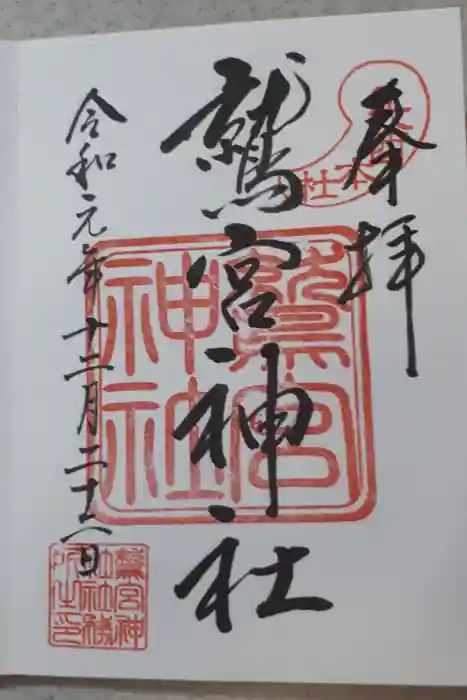 奉拝
鷲宮神社
鷲宮
神社
令和元年十二月二十六日
鷲宮神
社社務
所之印